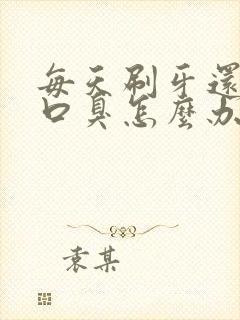 每天刷牙還
口臭怎麼办
袁某